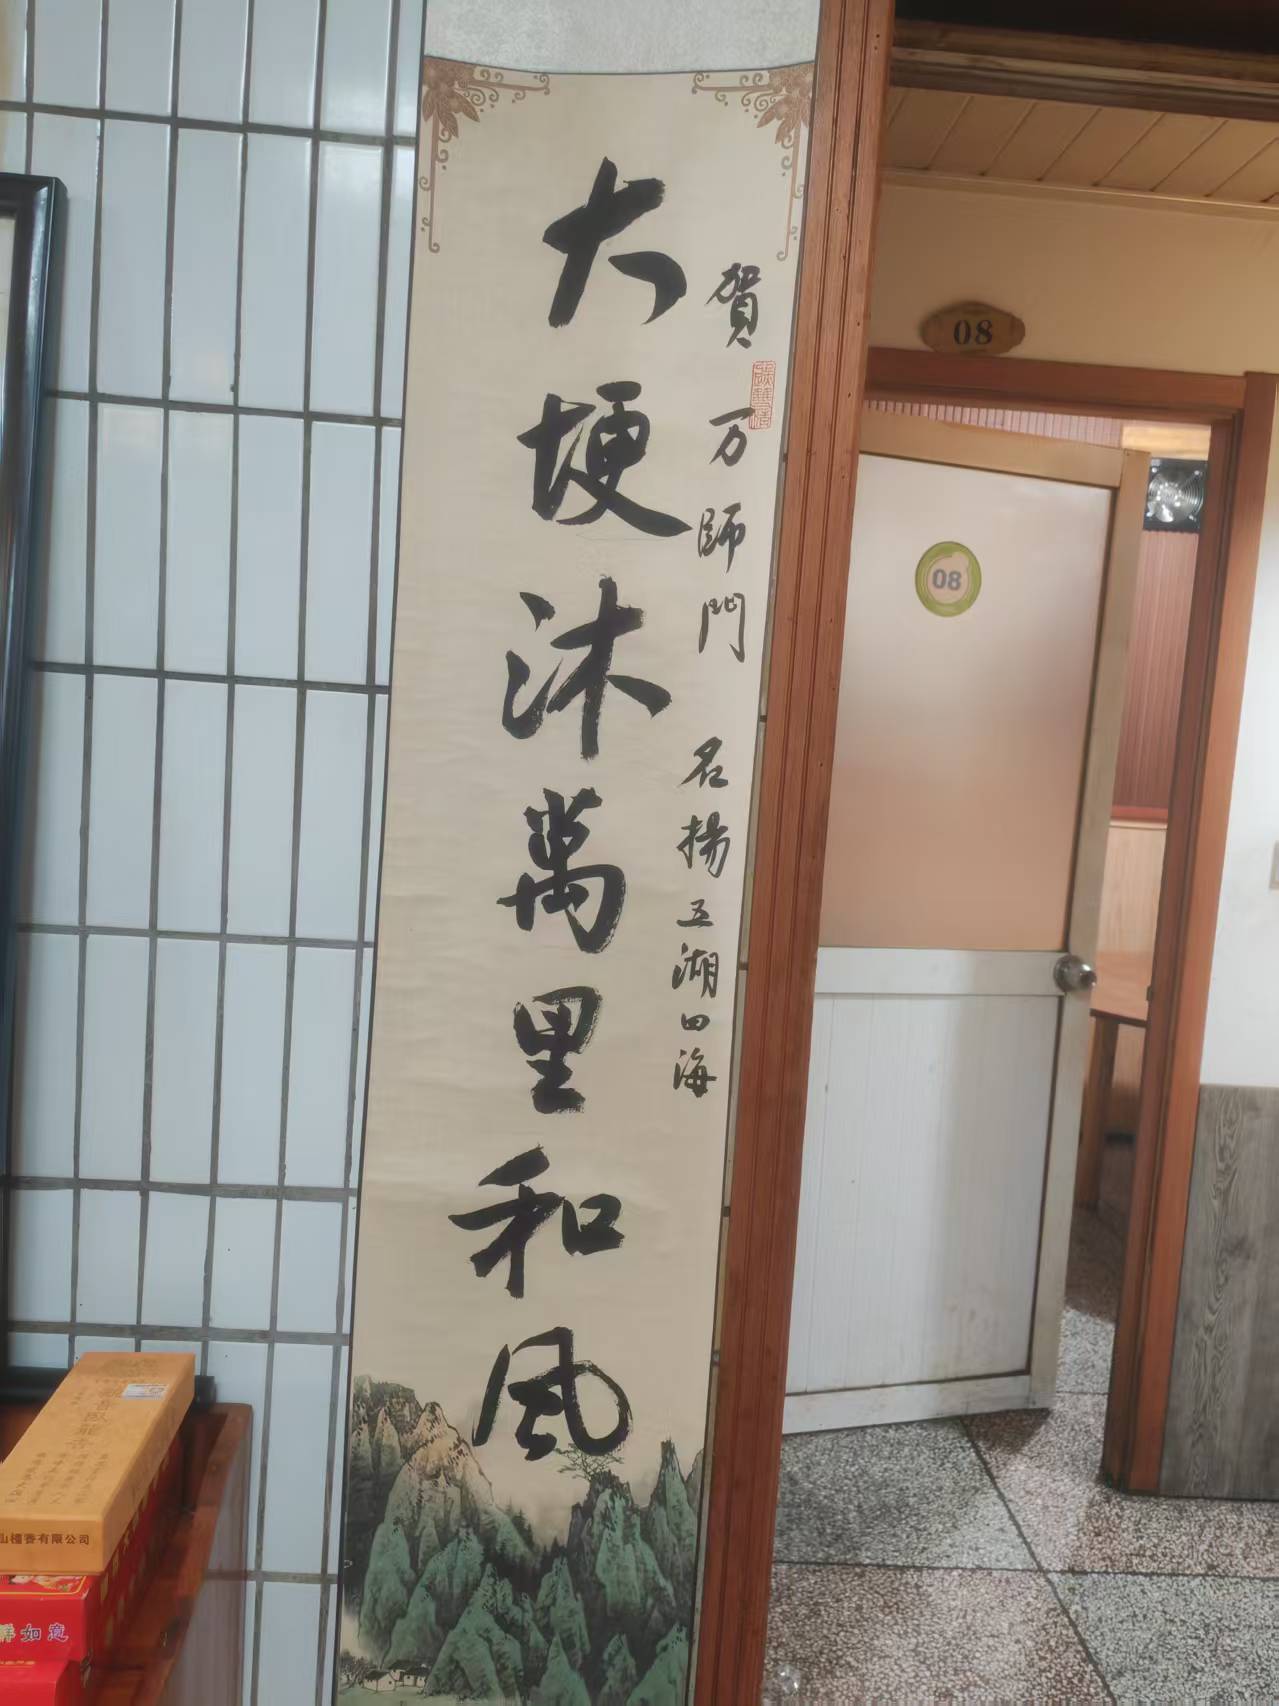 賀 万師門 名揚五湖四海
大埂沐萬里和風
08
08
山檀香有限公司
祥如意